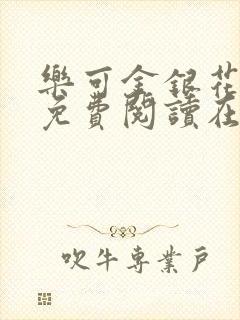 樂可金銀花
免費閱讀在
吹牛專業戶